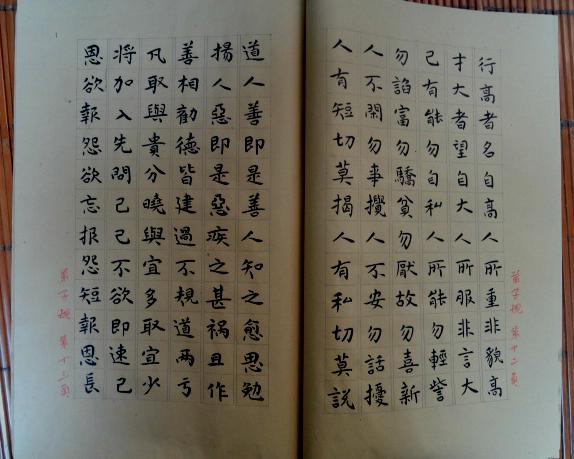 弟子规 第十二頁
行高者名自高人所重非貌高
才大者望自大人所服非言大
己有能勿自私人所能勿輕訾
勿諂富勿驕貧勿厭故勿喜新
人不閑勿事攪人不安勿話擾
人有短切莫揭人有私切莫說
道人善即是善人知之愈思勉
揚人惡即是惡疾之甚禍且作
善相勸德皆建過不規道兩亏
凡取與貴分曉與宜多取宜少
將加人先問己己不欲即速己
恩欲報怨欲忘报怨短報恩長
弟子规 第十三页